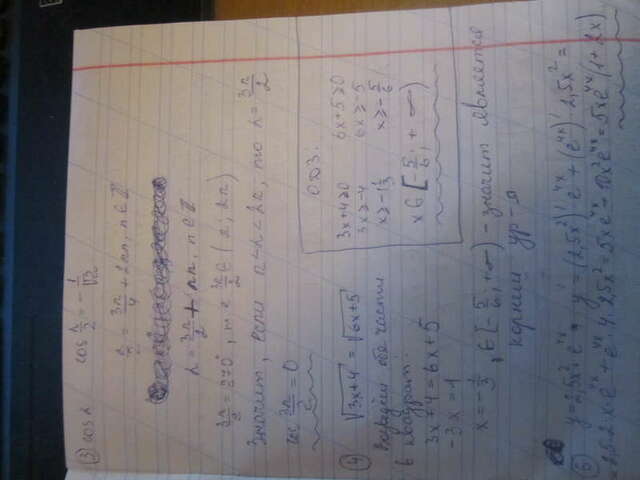 ③ cos α   cos α/2 = - 1/√2
α/2 = 3π/4 + 2πn, n ∈ Z
α = 3π/2 + πn, n ∈ Z
3π/2 = 270°, т.е 3π/2 ∈ (π; 2π)
Значит, если π < α < 2π, то α = 3π/2
cos 3π/2 = 0
④ √3x+4 = √6x+5
Возведём обе части
в квадрат:
3x+4 = 6x+5
-3x = 1
x = -1/3, ∈ [-5/6; +∞) - значит является
корнем ур-я
ОДЗ.
3x+4≥0   6x+5≥0
3x≥-4   6x≥-5
x≥-1 1/3   x≥-5/6
x∈[-5/6; +∞)
⑤ y = 2,5x² · e^4x   y' = (2,5x²)' e^4x + (e^4x)' · 2,5x² =
= 2,5·2·x·e^4x + e^4x · 4 · 2,5x² = 5xe^4x + 10x²e^4x = 5xe^4x (1 + 2x)